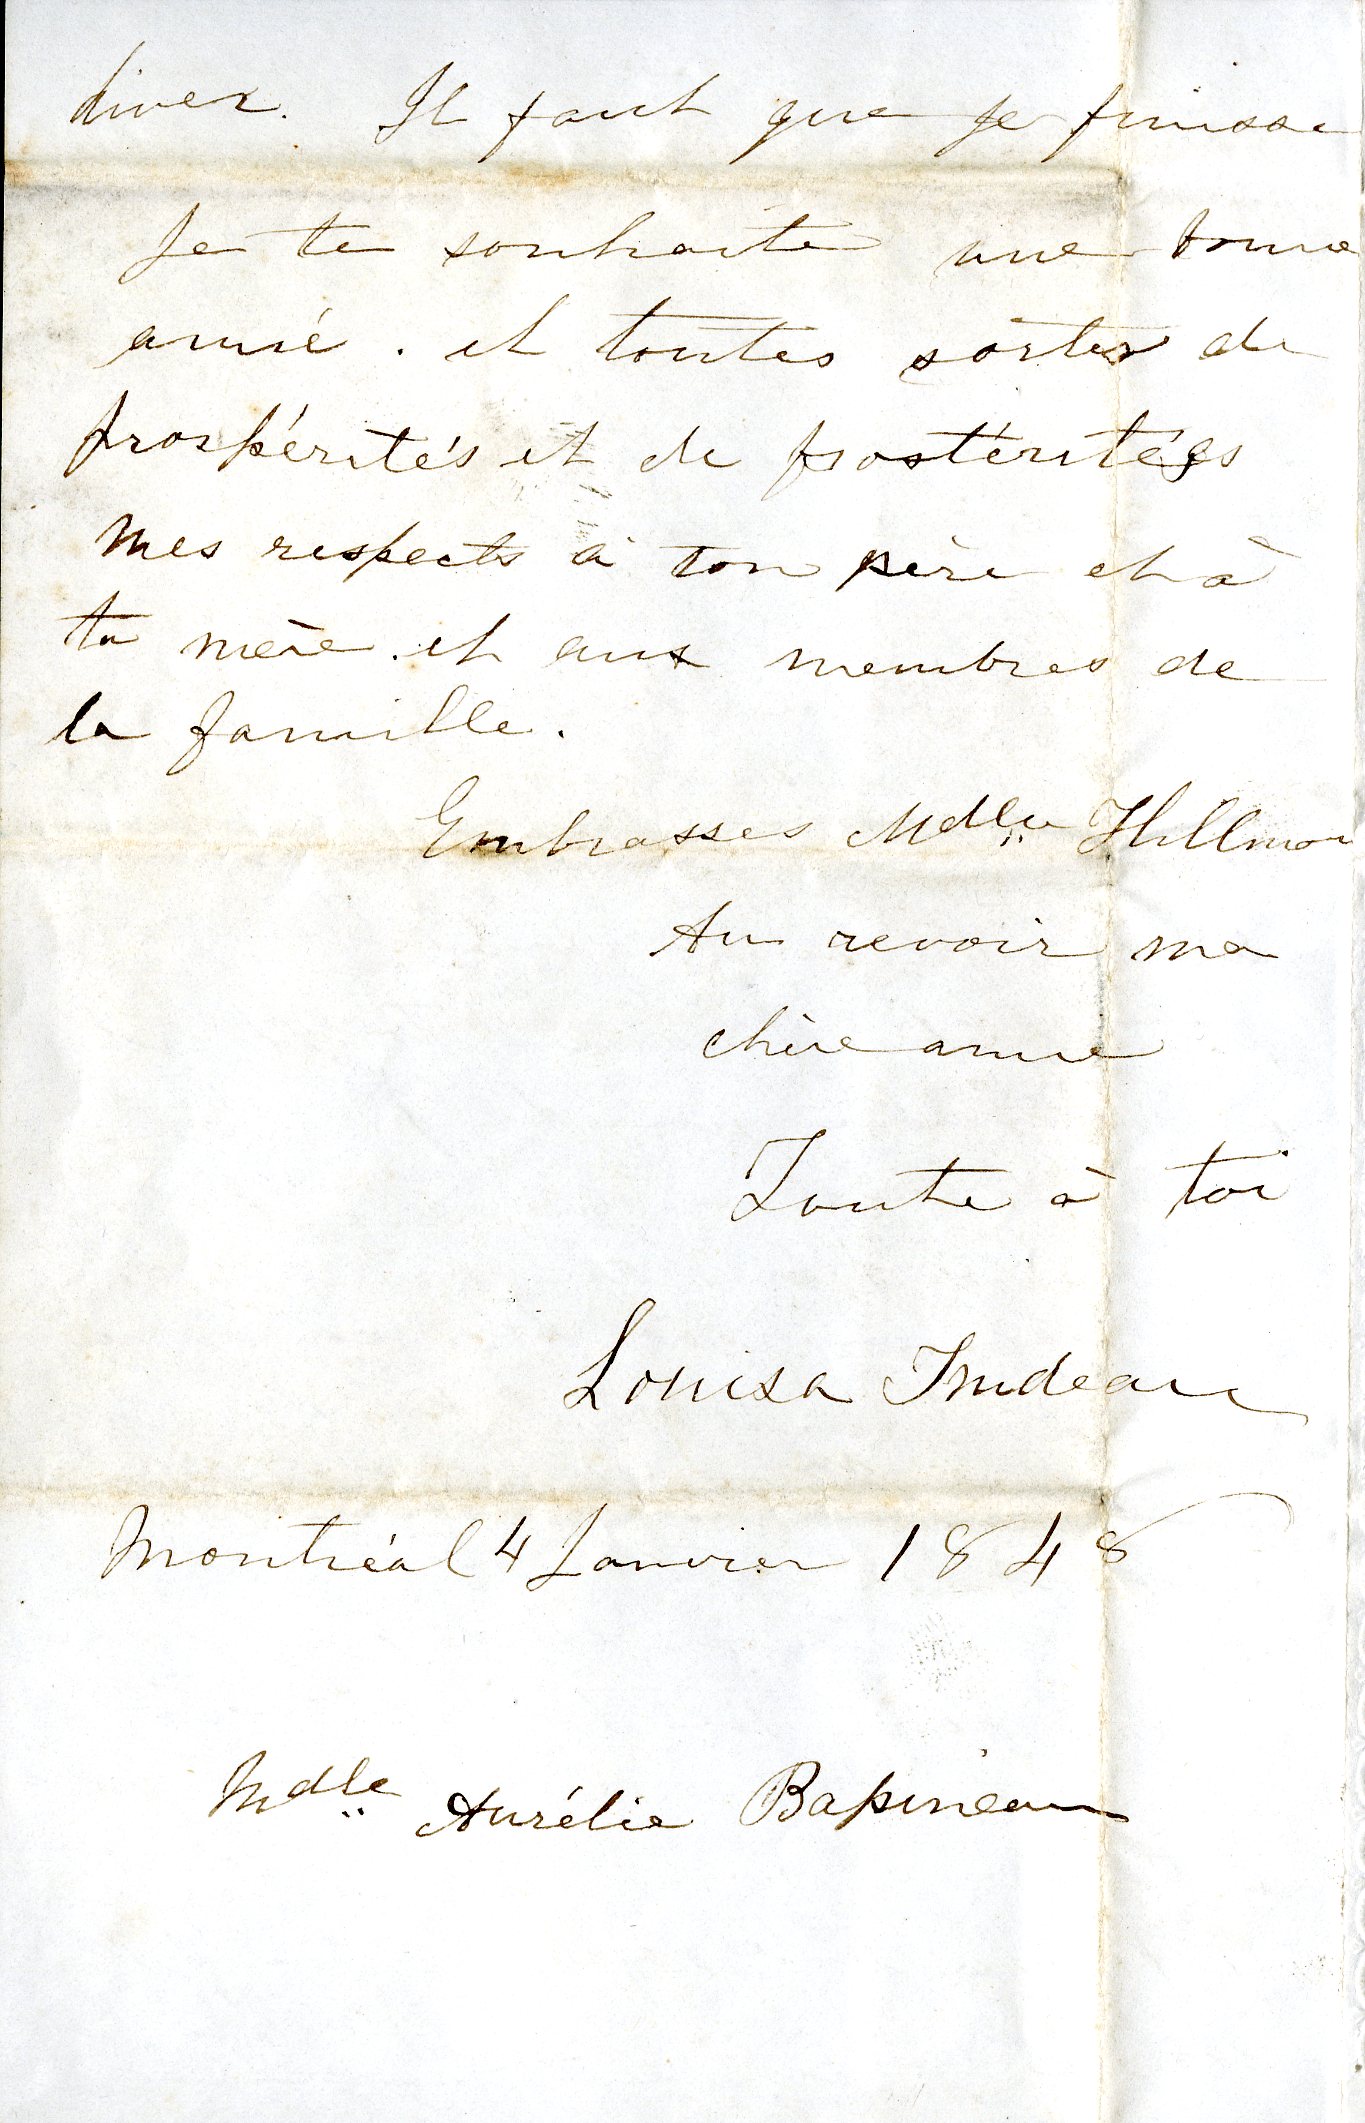 hiver. Il faut que je finisse
Je te souhaite une bonne
année. et toutes sortes de
prospérités et de postéritées
Mes respects à ton père et à
ta mère. et aux membres de
la famille.
Embrasses Mdlle
Au revoir ma
chère amie
Toute à toi
Louisa Trudeau
Montréal 4 Janvier 1848
Mdlle Aurélie Papineau